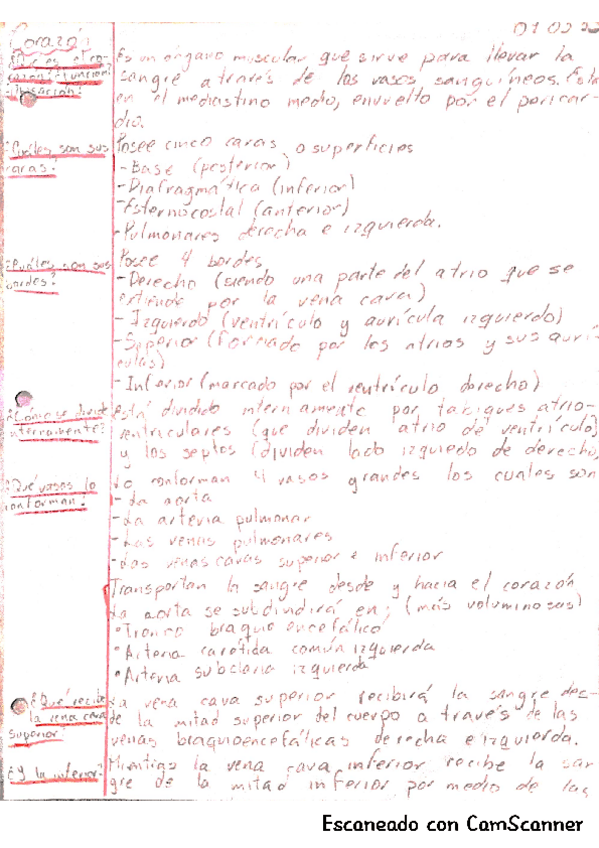 Corazón
01 02 22
¿Qué es el co-
razón? ¿Función?
¿Ubicación?
Es un órgano muscular que sirve para llevar la
sangre a través de los vasos sanguíneos. Está
en el mediastino medio, envuelto por el pericar-
dio.
¿Cuáles son sus
caras?
Posee cinco caras o superficies
-Base (posterior)
-Diafragmática (inferior)
-Esternocostal (anterior)
-Pulmonares derecha e izquierda.
¿Cuáles son sus
bordes?
Posee 4 bordes
-Derecho (siendo una parte del atrio que se
extiende por la vena cava)
-Izquierdo (ventrículo y aurícula izquierdo)
-Superior (Formado por los atrios y sus aurí
culas)
-Inferior (marcado por el ventrículo derecho)
¿Cómo se divide
internamente?
Está dividido internamente por tabiques atrio-
ventriculares (que dividen atrio de ventrículo)
y los septos (dividen lado izquiedo de derecho)
¿Qué vasos lo
conforman?
Lo conforman 4 vasos grandes los cuales son
-La aorta
-La arteria pulmonar
-Las venas pulmonares
-Las venas cavas superior e inferior
Transportan la sangre desde y hacia el corazón
La aorta se subdividirá en: (más voluminosas)
•Tronco braquioencefálico
•Arteria carótida común izquierda
•Arteria subclavia izquierda
¿Qué recibe
la vena cava
superior?
La vena cava superior recibirá la sangre des-
de la mitad superior del cuerpo a través de las
venas braquioencefálicas derecha e izquierda.
¿Y la inferior?
Mientras la vena cava inferior recibe la san
gre de la mitad inferior por medio de las
Escaneado con CamScanner